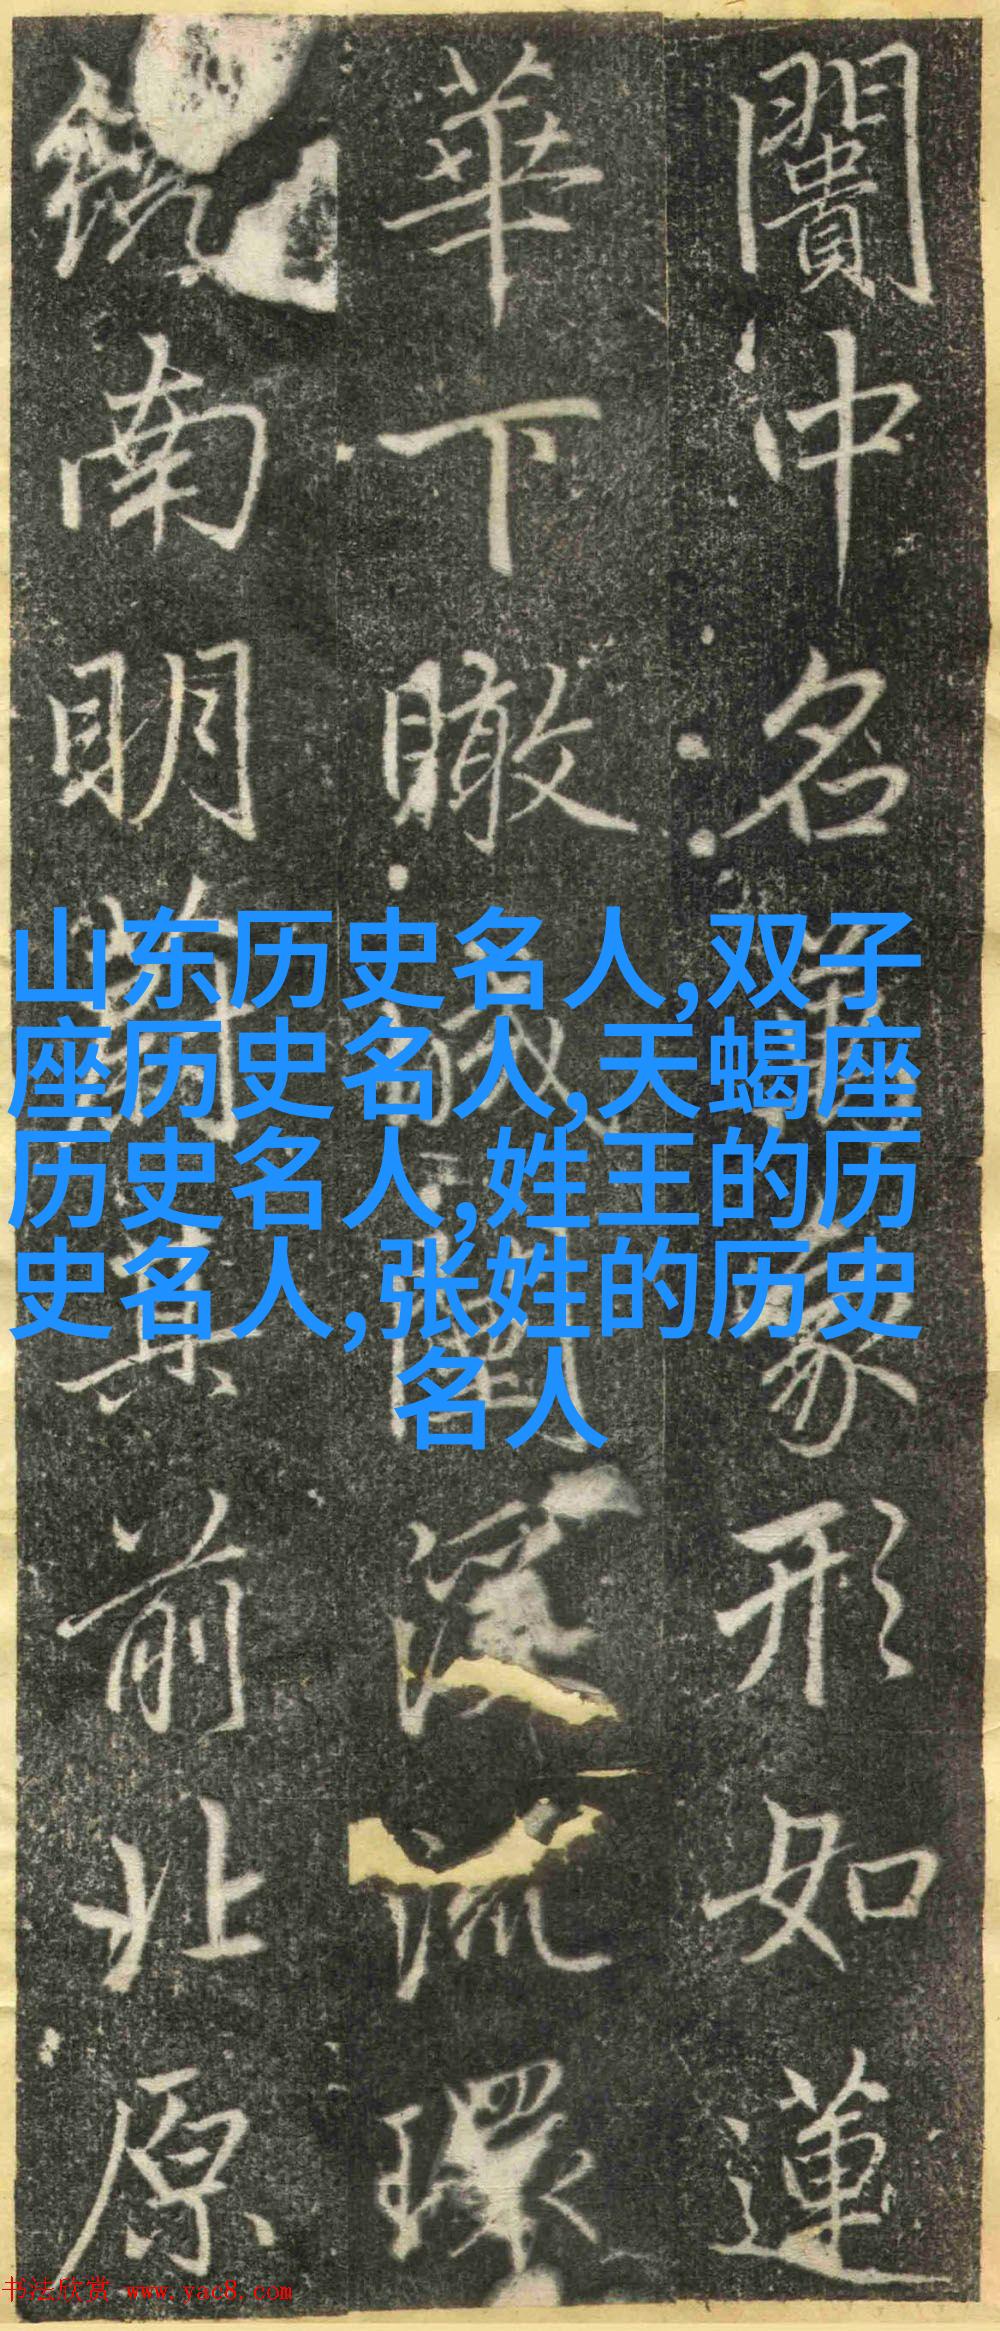 闠冲名象形如蓮
華下瞰城環
南明對其前北原
山东历史名人,双子
座历史名人,天蝎座
历史名人,姓王的历
史名人,张姓的历史
名人
书法欣赏 www.yac8.com